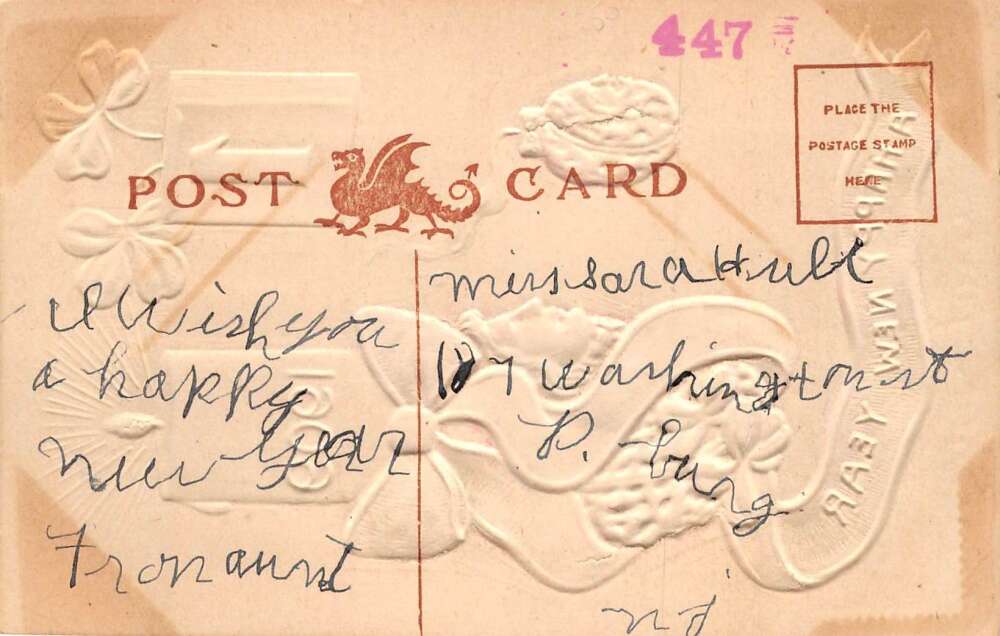 447
POST CARD
PLACE THE
POSTAGE STAMP
HERE
HAPPY NEW YEAR
I Wish you
a happy
New Year
Fron aunt
miss sara Hull
107 Washington st
P. burg
n J